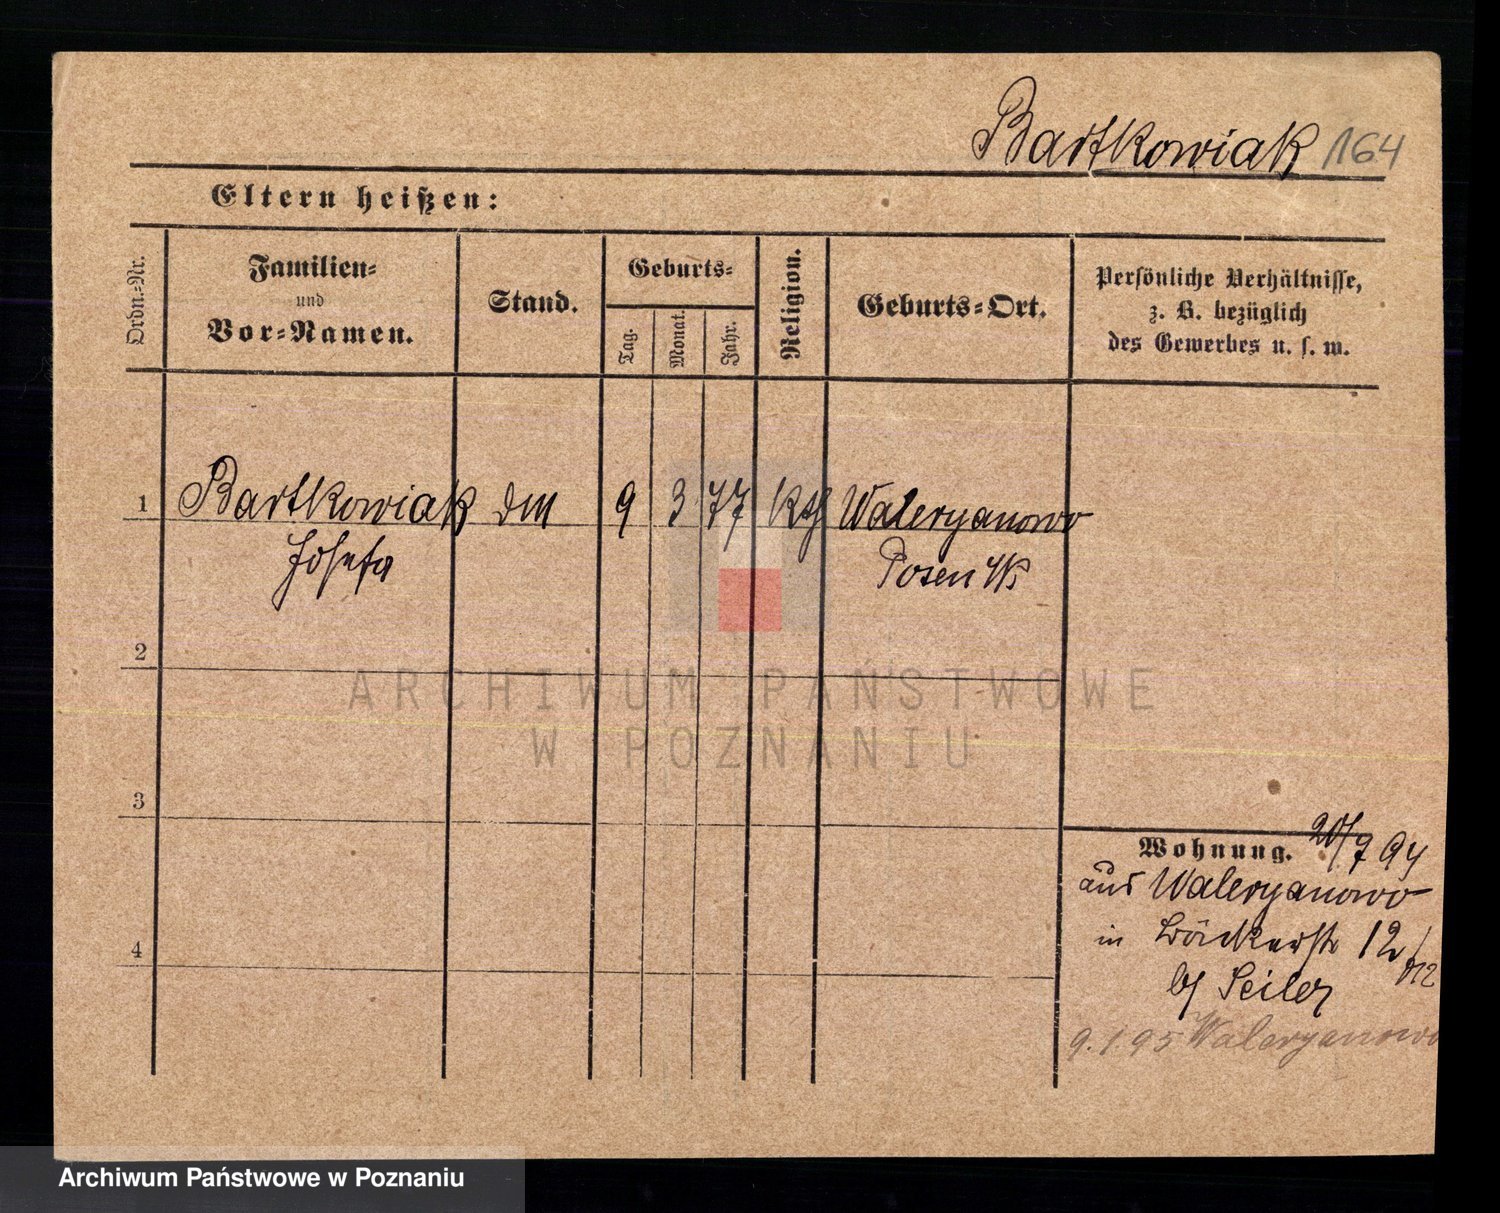 Bartkowiak 164
Eltern heißen:
Ordn.-Nr.
Familien-
und
Vor-Namen.
Stand.
Geburts-
Tag.
Monat.
Jahr.
Religion.
Geburts-Ort.
Persönliche Verhältnisse,
z. B. bezüglich
des Gewerbes u. s. w.
1 Bartkowiak 9 3 77 kth Waleryanowo
Josefa Posen
2
ARCHIWUM PAŃSTWOWE
W POZNANIU
3
Wohnung. 20/7 94
aus Waleryanowo
in 12/
4
bj Seiler
9.1.95 Waleryanowo
Archiwum Państwowe w Poznaniu